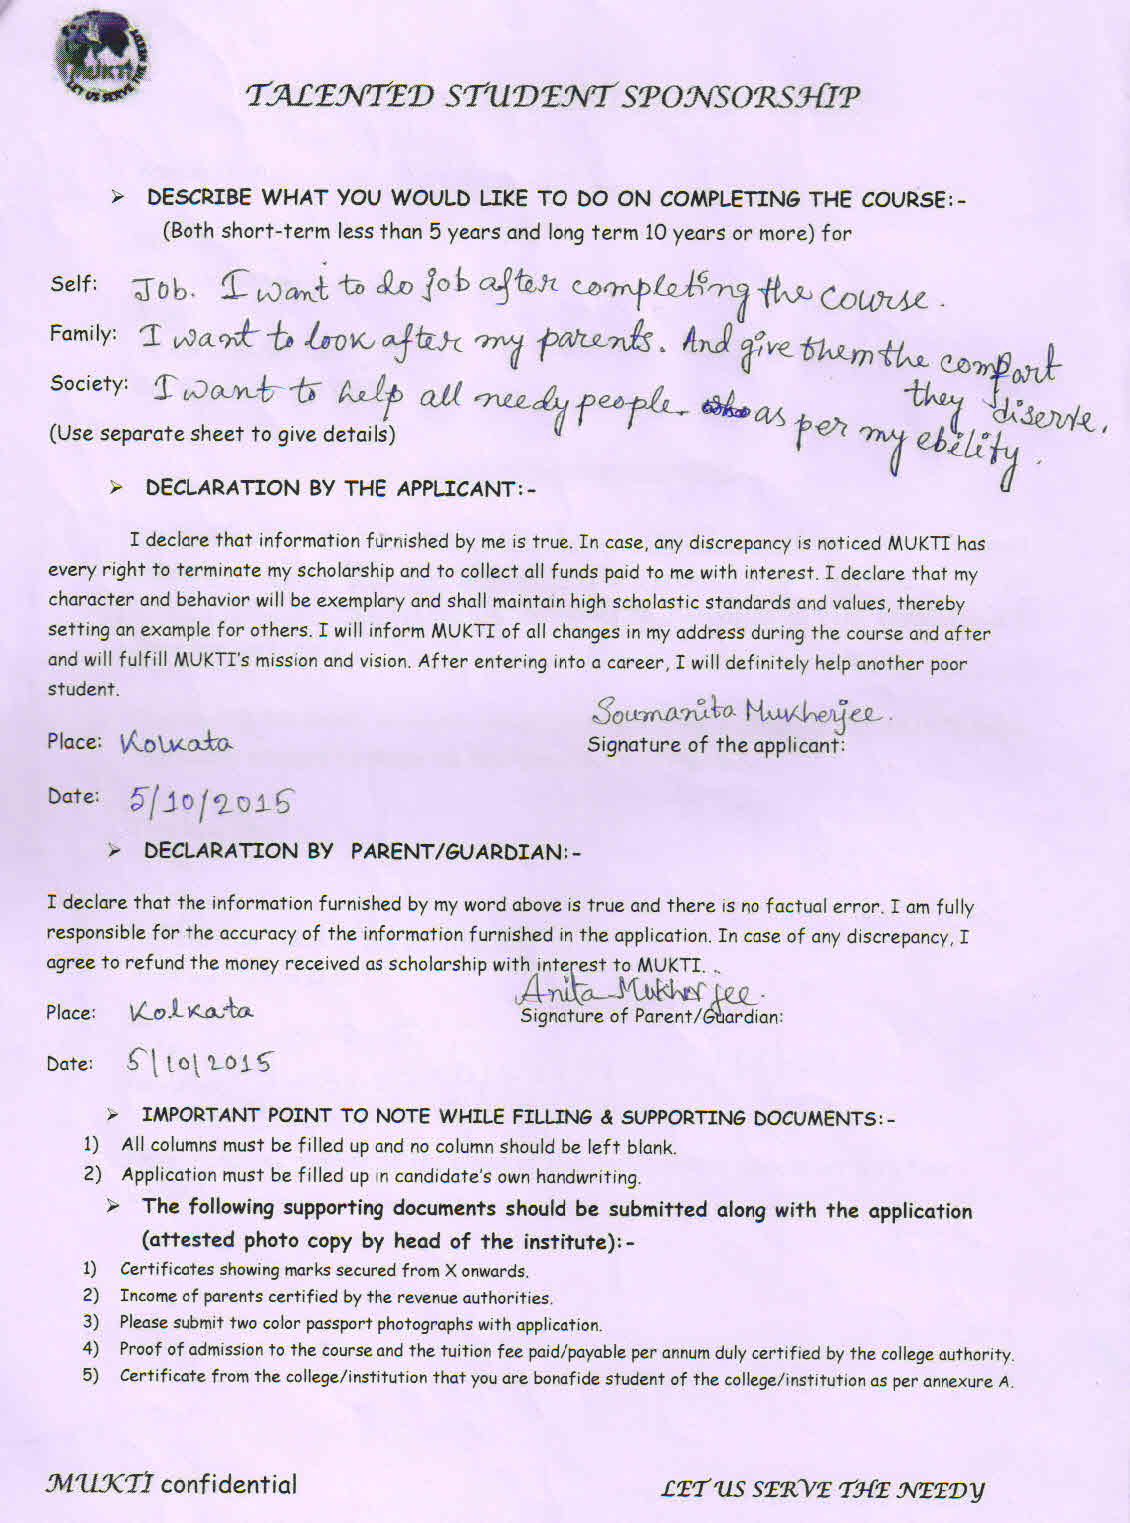 MUKTI
LET US SERVE THE NEEDY
TALENTED STUDENT SPONSORSHIP
➢ DESCRIBE WHAT YOU WOULD LIKE TO DO ON COMPLETING THE COURSE:-
(Both short-term less than 5 years and long term 10 years or more) for
Self: Job. I want to do job after completing the course.
Family: I want to look after my parents. And give them the comfort they diserve.
Society: I want to help all needy people as per my ebility.
(Use separate sheet to give details)
➢ DECLARATION BY THE APPLICANT:-
I declare that information furnished by me is true. In case, any discrepancy is noticed MUKTI has
every right to terminate my scholarship and to collect all funds paid to me with interest. I declare that my
character and behavior will be exemplary and shall maintain high scholastic standards and values, thereby
setting an example for others. I will inform MUKTI of all changes in my address during the course and after
and will fulfill MUKTI's mission and vision. After entering into a career, I will definitely help another poor
student.
Soumanita Mukherjee.
Place: Kolkata Signature of the applicant:
Date: 5/10/2015
➢ DECLARATION BY PARENT/GUARDIAN:-
I declare that the information furnished by my word above is true and there is no factual error. I am fully
responsible for the accuracy of the information furnished in the application. In case of any discrepancy, I
agree to refund the money received as scholarship with interest to MUKTI.
Anita Mukherjee.
Place: Kolkata Signature of Parent/Guardian:
Date: 5/10/2015
➢ IMPORTANT POINT TO NOTE WHILE FILLING & SUPPORTING DOCUMENTS:-
1) All columns must be filled up and no column should be left blank.
2) Application must be filled up in candidate's own handwriting.
➢ The following supporting documents should be submitted along with the application
(attested photo copy by head of the institute):-
1) Certificates showing marks secured from X onwards.
2) Income of parents certified by the revenue authorities.
3) Please submit two color passport photographs with application.
4) Proof of admission to the course and the tuition fee paid/payable per annum duly certified by the college authority.
5) Certificate from the college/institution that you are bonafide student of the college/institution as per annexure A.
MUKTI confidential LET US SERVE THE NEEDY